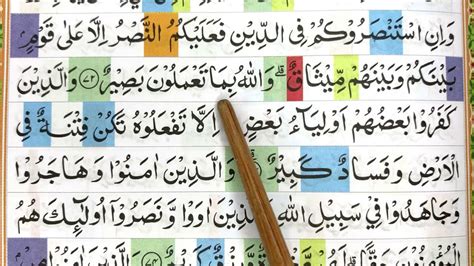 وَاِنِ اسْتَنْصَرُوْكُمْ فِى الدِّيْنِ فَعَلَيْكُمُ النَّصْرُ اِلَّا عَلٰى قَوْمٍۭ
بَيْنَكُمْ وَبَيْنَهُمْ مِّيْثَاقٌ ؕ وَاللّٰهُ بِمَا تَعْمَلُوْنَ بَصِيْرٌ ﴿۷۲﴾ وَالَّذِيْنَ
كَفَرُوْا بَعْضُهُمْ اَوْلِيَآءُ بَعْضٍ ؕ اِلَّا تَفْعَلُوْهُ تَكُنْ فِتْنَةٌ فِى
الْاَرْضِ وَفَسَادٌ كَبِيْرٌ وَالَّذِيْنَ اٰمَنُوْا وَهَاجَرُوْا
وَجَاهَدُوْا فِىْ سَبِيْلِ اللّٰهِ وَالَّذِيْنَ اٰوَوْا وَّنَصَرُوْۤا اُولٰٓئِكَ هُمُ